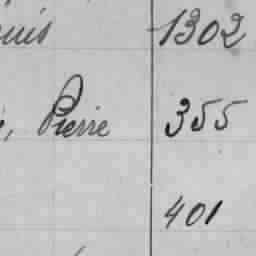 1302
, Pierre 355
401